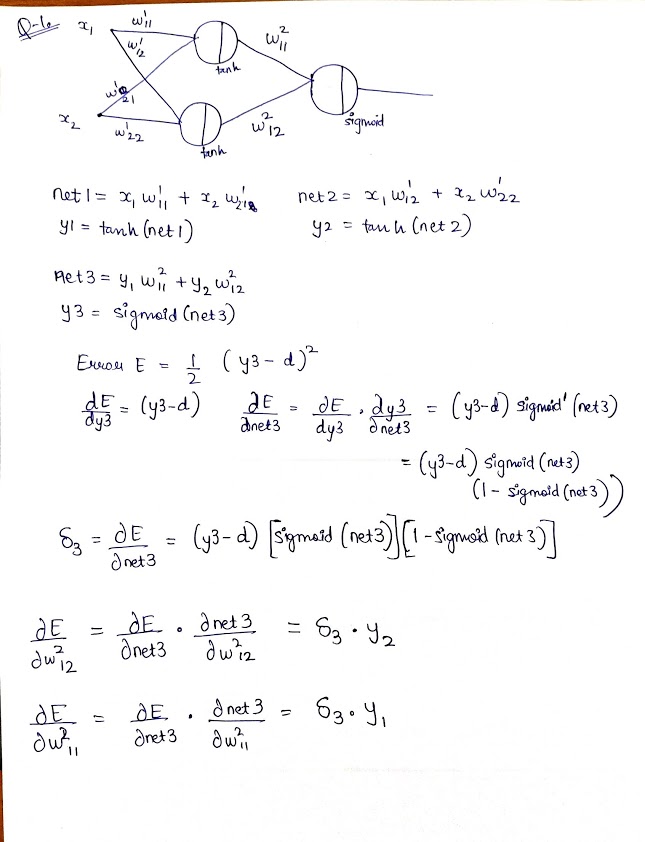 Q-1.
x₁ w¹₁₁ w¹₁₂ tanh w²₁₁
x₂ w¹₂₁ w¹₂₂ tanh w²₁₂ sigmoid
net1 = x₁ w¹₁₁ + x₂ w¹₂₁ net2 = x₁ w¹₁₂ + x₂ w¹₂₂
y1 = tanh (net1) y2 = tanh (net2)
net3 = y₁ w²₁₁ + y₂ w²₁₂
y3 = sigmoid (net3)
Error E = 1/2 (y3 - d)²
dE/dy3 = (y3-d) ∂E/∂net3 = ∂E/dy3 . dy3/∂net3 = (y3-d) sigmoid' (net3)
= (y3-d) sigmoid (net3)
(1 - sigmoid (net3))
δ₃ = ∂E/∂net3 = (y3-d) [sigmoid (net3)] [1 - sigmoid (net3)]
∂E/∂w²₁₂ = ∂E/∂net3 . ∂net3/∂w²₁₂ = δ₃ . y₂
∂E/∂w²₁₁ = ∂E/∂net3 . ∂net3/∂w²₁₁ = δ₃ . y₁